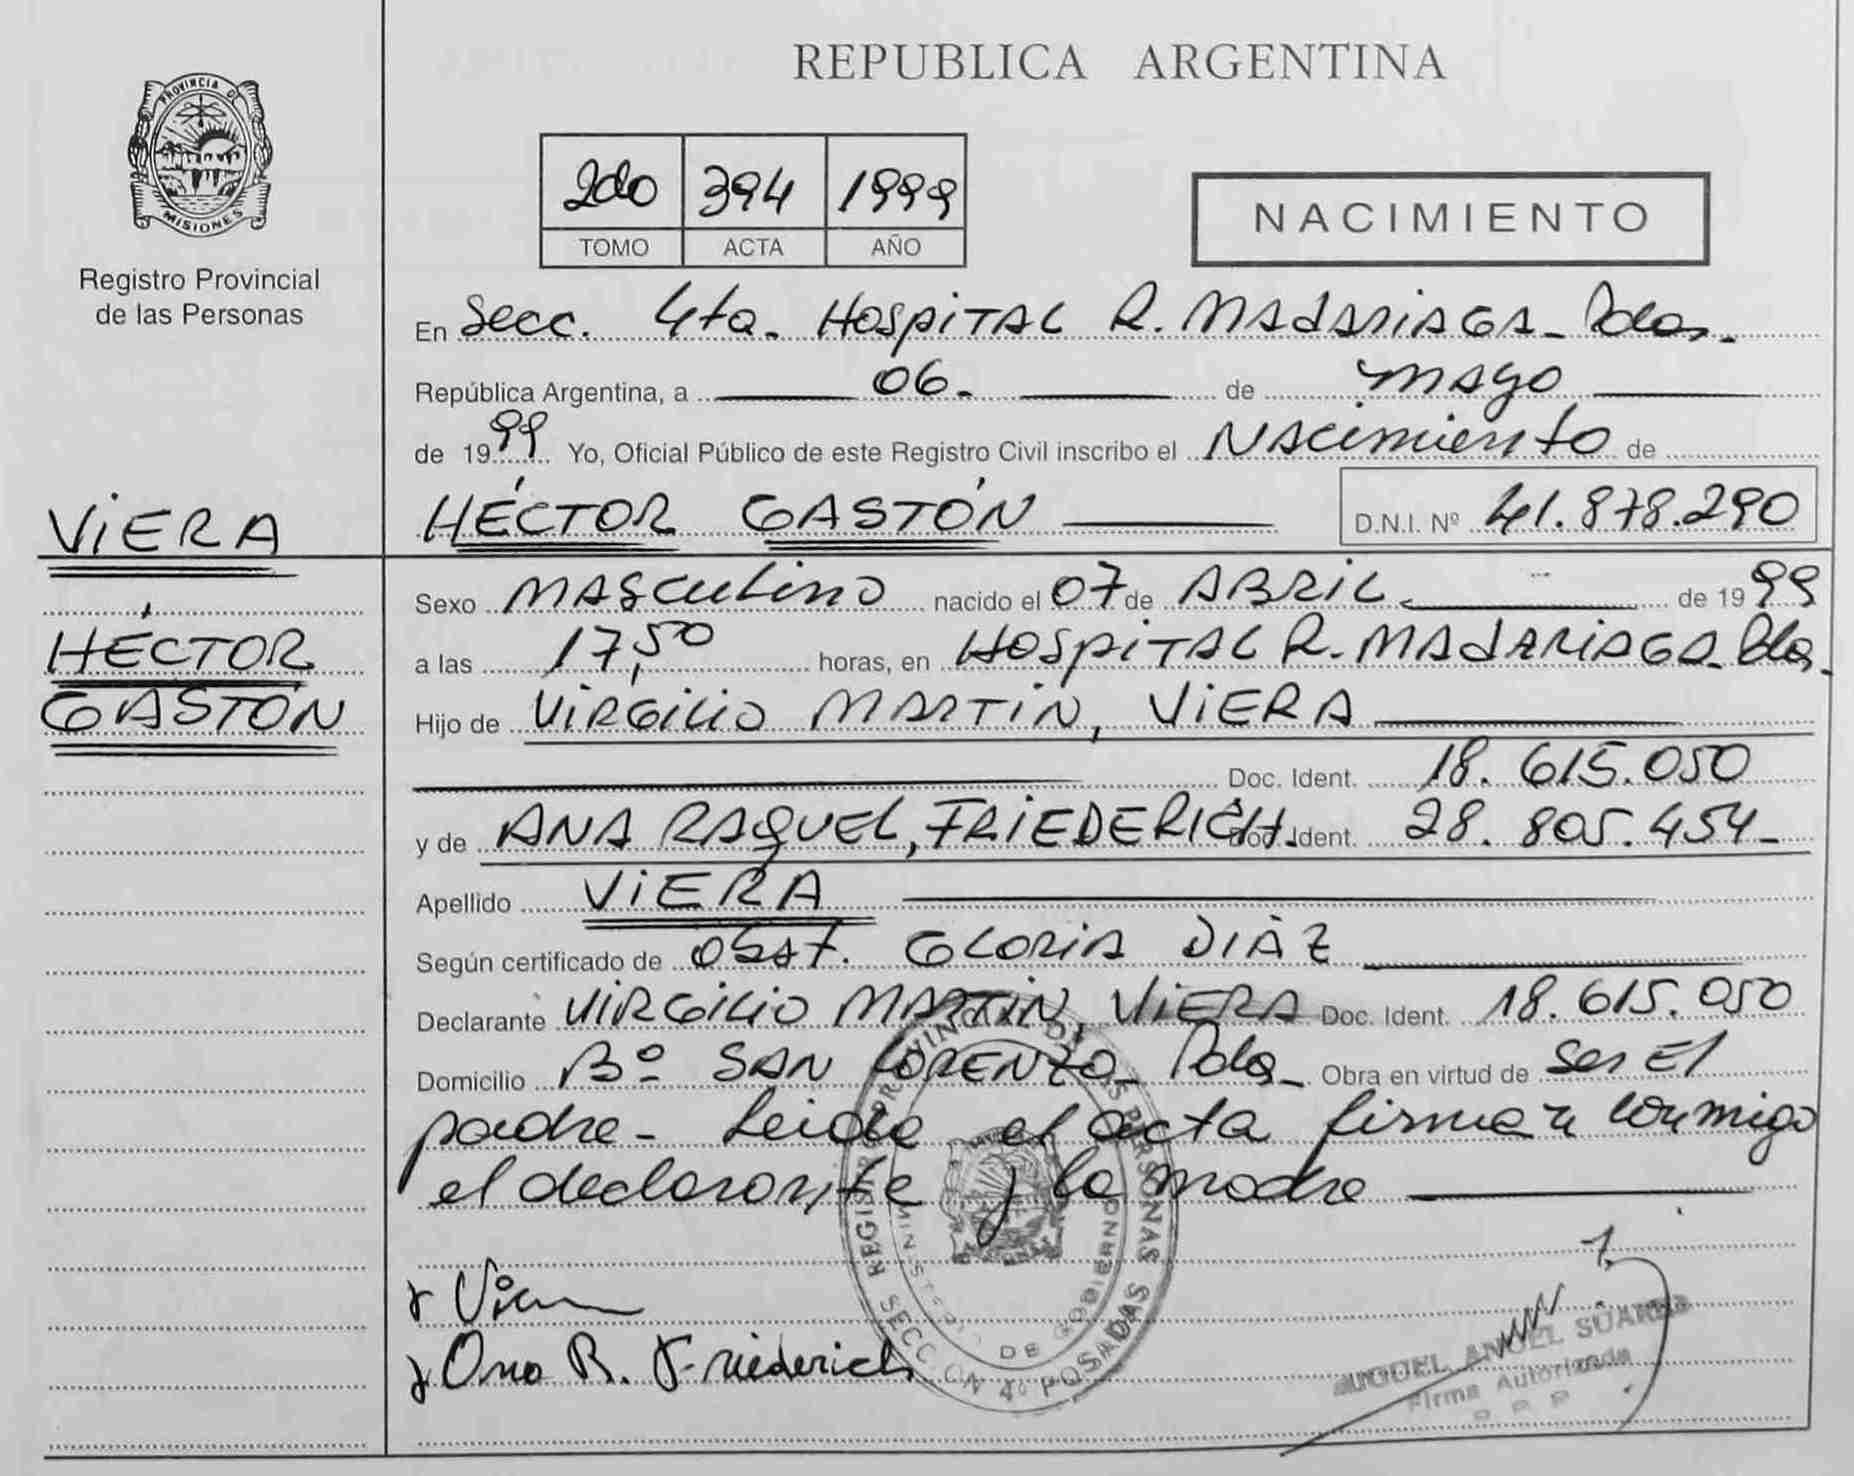 REPUBLICA ARGENTINA
PROVINCIA DE
MISIONES
Registro Provincial
de las Personas
2do 394 1999
TOMO ACTA AÑO
NACIMIENTO
En Secc. 4ta. HOSPITAL R. MADARIAGA - Pdas.
República Argentina, a 06. de mayo
de 1999 Yo, Oficial Público de este Registro Civil inscribo el Nacimiento de
VIERA
HÉCTOR GASTÓN D.N.I. Nº 41.878.290
Sexo MASCULINO nacido el 07 de ABRIL de 1999
HÉCTOR
a las 17,50 horas, en HOSPITAL R. MADARIAGA - Pdas.
GASTÓN
Hijo de VIRGILIO MARTIN, VIERA
Doc. Ident. 18.615.050
y de ANA RAQUEL, FRIEDERICH. Doc. Ident. 28.805.454-
Apellido VIERA
Según certificado de Obst. GLORIA DIÁZ
Declarante VIRGILIO MARTIN, VIERA Doc. Ident. 18.615.050
Domicilio Bº SAN LORENZO - Pdas - Obra en virtud de Ser El
padre - Leida el acta firman conmigo
el declarante y la madre
Viera
Ana R. Friederich
REGISTRO PROVINCIAL DE LAS PERSONAS
SECCION 4º POSADAS
MINISTERIO DE GOBIERNO
MIGUEL ANGEL SUAREZ
Firma Autorizada